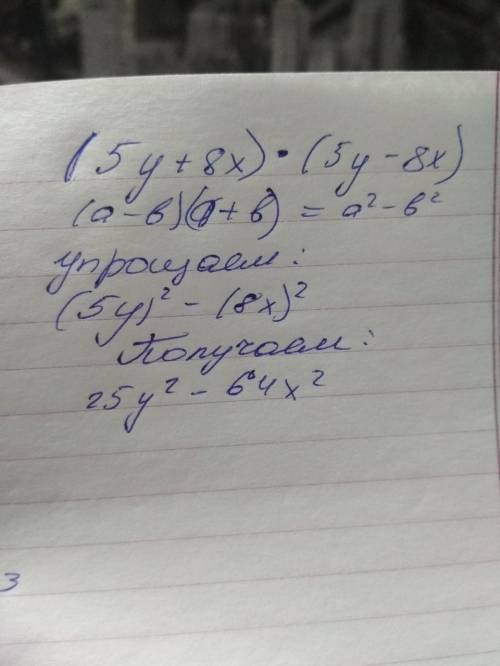 (5y+8x)·(5y-8x)
(a-в)(a+в) = a²-в²
упрощаем:
(5y)²-(8x)²
Получаем:
25y²-64x²
3